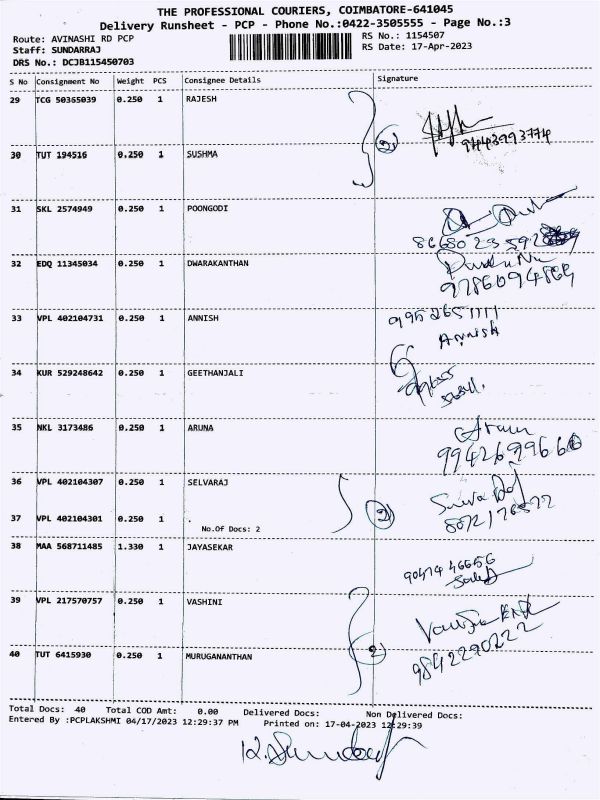 THE PROFESSIONAL COURIERS, COIMBATORE-641045
Delivery Runsheet - PCP - Phone No.:0422-3505555 - Page No.:3
Route: AVINASHI RD PCP
RS No.: 1154507
Staff: SUNDARRAJ
RS Date: 17-Apr-2023
DRS No.: DCJB115450703
S No Consignment No Weight PCS Consignee Details Signature
29 TCG 50365039 0.250 1 RAJESH
2
9443993774
30 TUT 194516 0.250 1 SUSHMA
31 SKL 2574949 0.250 1 POONGODI
32 EDQ 11345034 0.250 1 DWARAKANTHAN
9786094869
33 VPL 402104731 0.250 1 ANNISH
9952651111
Annish
34 KUR 529248642 0.250 1 GEETHANJALI
35 NKL 3173486 0.250 1 ARUNA
Arun
36 VPL 402104307 0.250 1 SELVARAJ
2
37 VPL 402104301 0.250 1 .
No.Of Docs: 2
38 MAA 568711485 1.330 1 JAYASEKAR
39 VPL 217570757 0.250 1 VASHINI
2
9842290222
40 TUT 6415930 0.250 1 MURUGANANTHAN
Total Docs: 40 Total COD Amt: 0.00 Delivered Docs: Non Delivered Docs:
Entered By :PCPLAKSHMI 04/17/2023 12:29:37 PM Printed on: 17-04-2023 12:29:39